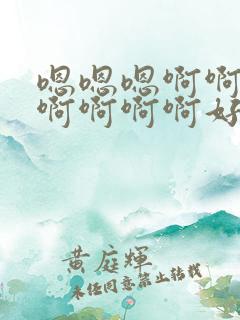 嗯嗯嗯啊啊
啊啊啊啊好
黄庭輝
未经同意禁止转载